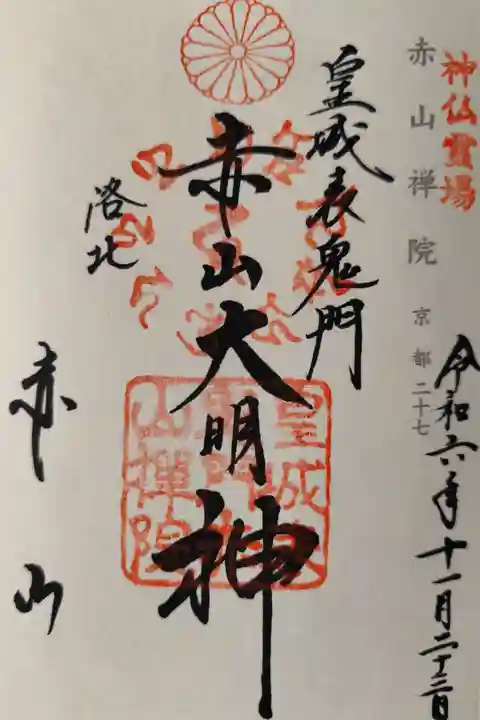 神仏霊場
赤山禅院 京都二十七
令和六年十一月二十三日
皇城表鬼門
赤山大明神
洛北
赤山